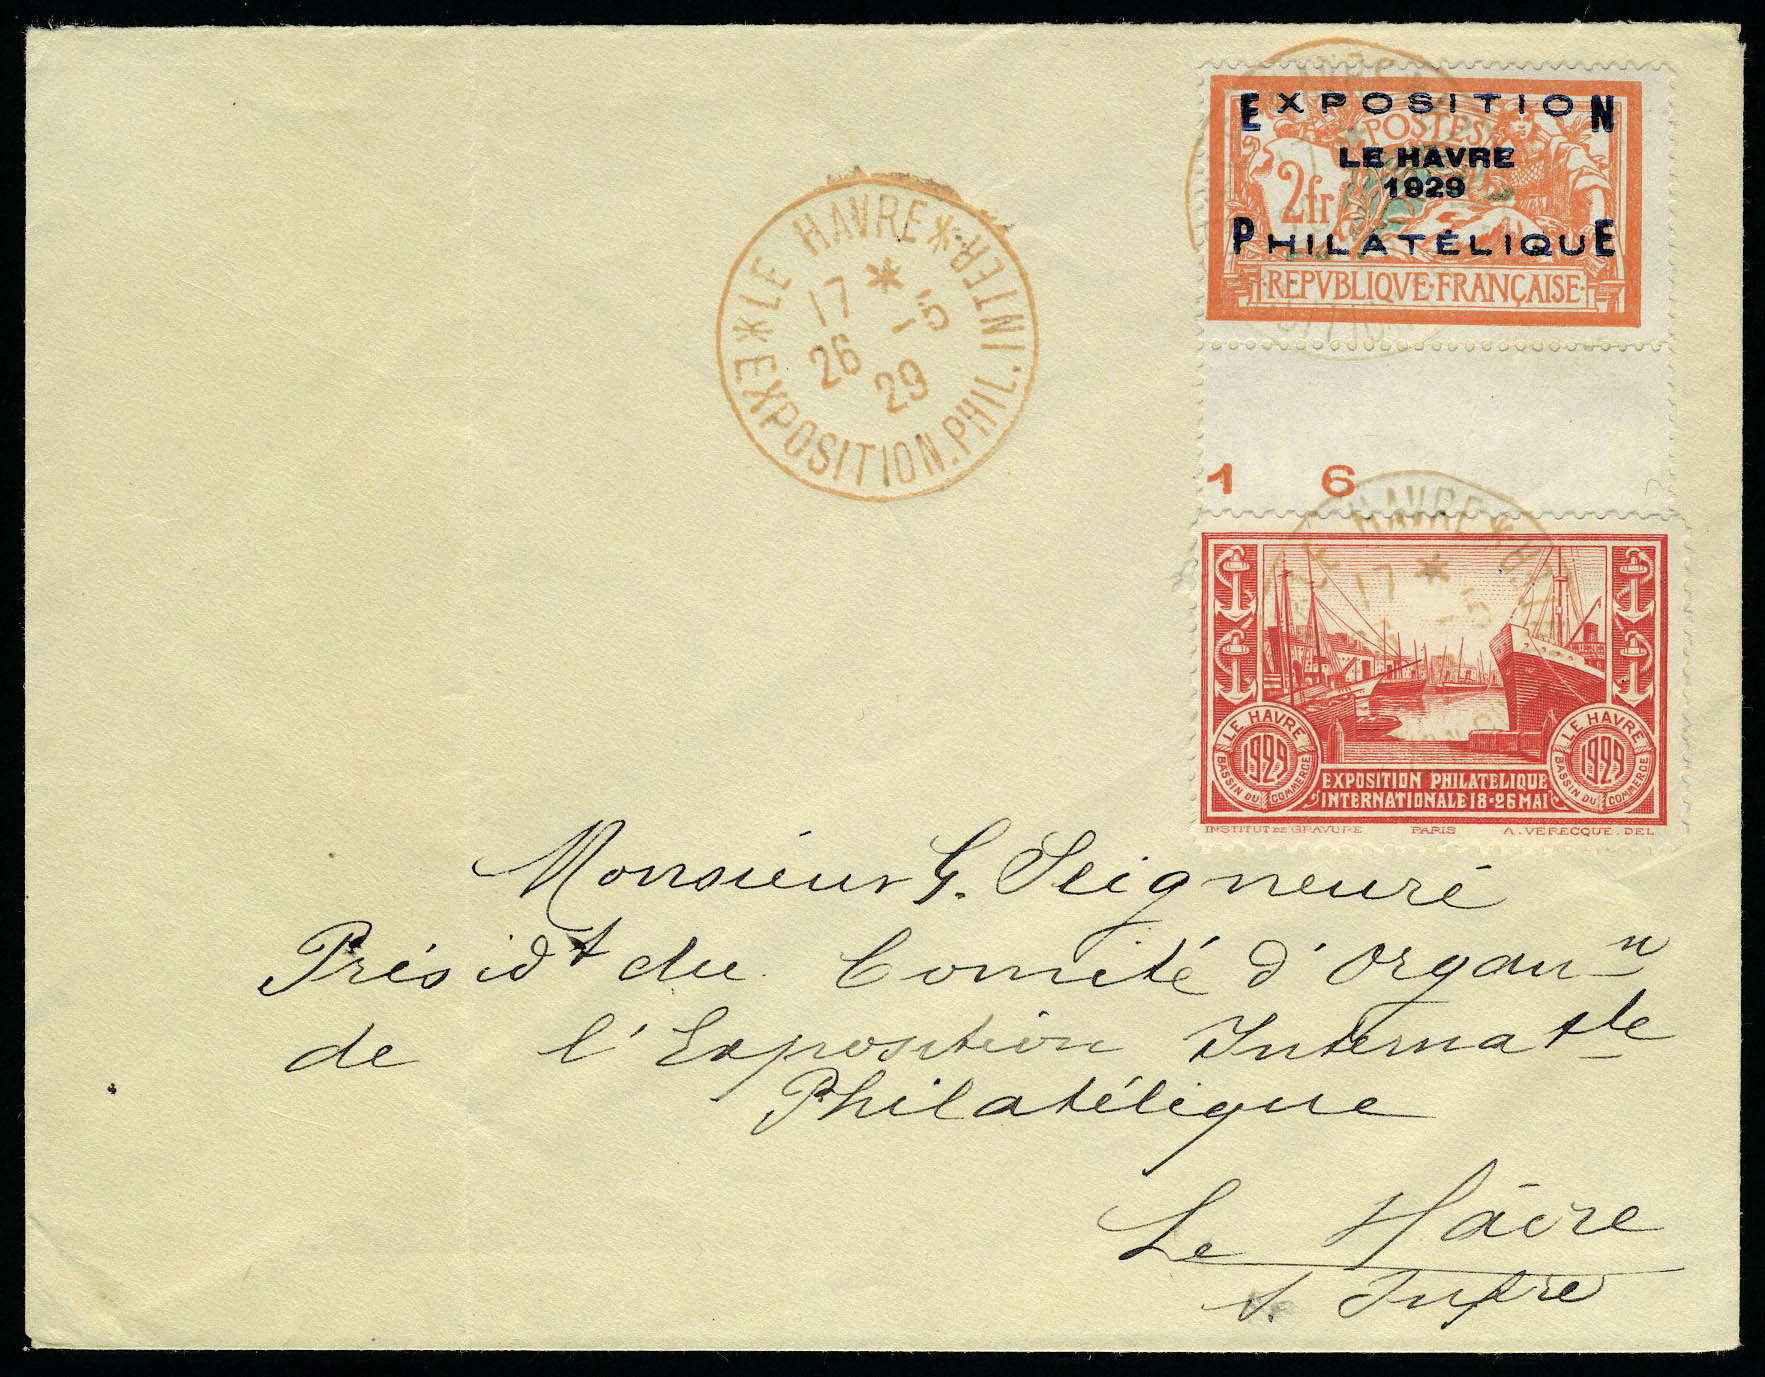 EXPOSITION
POSTES
LE HAVRE
1929
2fr
PHILATÉLIQUE
REPVBLIQVE·FRANÇAISE
LE HAVRE * INTER.
17 * -5
26 29
EXPOSITION.PHIL.
1 6
LE HAVRE * INTER
17 * -5
LE HAVRE
1929
BASSIN DU COMMERCE
EXPOSITION PHILATELIQUE
INTERNATIONALE 18-26 MAI
LE HAVRE
1929
BASSIN DU COMMERCE
INSTITUT DE GRAVURE PARIS A. VERECQUE. DEL
Monsieur G. Seigneuré
Présidt du Comité d'Organn
de l'Exposition Internatle
Philatélique
Le Hâvre
S. Infre